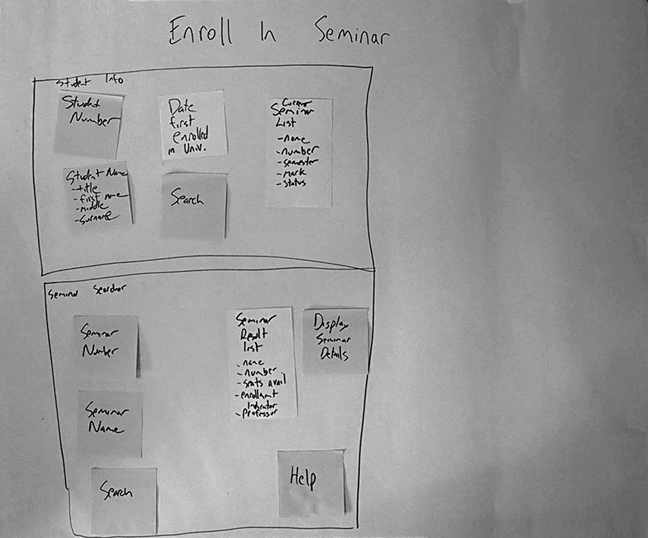 Enroll In Seminar
Student Info
Student
Number
Date
first
enrolled
in Univ.
Seminar
List
-name
-number
-semester
-mark
-status
Student Name
-title
-first name
-middle
-surname
Search
Seminar Searcher
Seminar
Number
Seminar
Result
list
-name
-number
-seats avail
-enrollment
Indicator
-Professor
Display
Seminar
Details
Seminar
Name
Search
Help